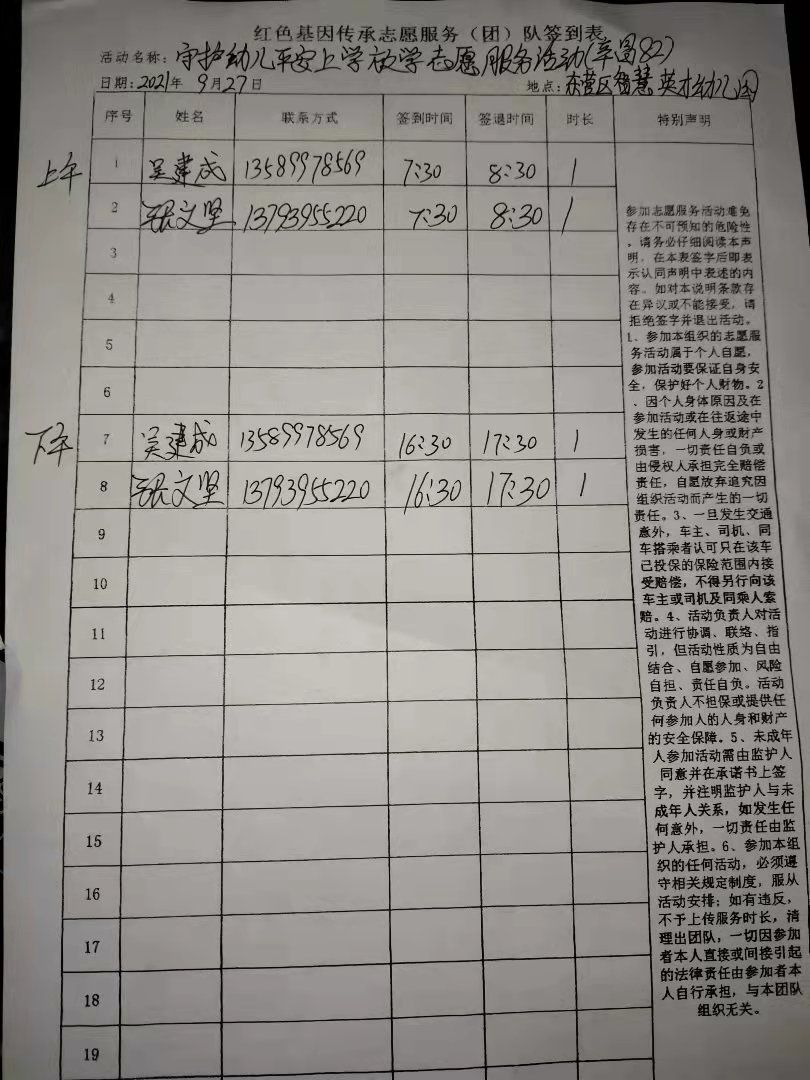 红色基因传承志愿服务（团）队签到表
活动名称：守护幼儿平安上学放学志愿服务活动(第82)
日期：2021年 9月27日 地点：东营区智慧英才幼儿园
序号 姓名 联系方式 签到时间 签退时间 时长 特别声明
上午
1 吴建成 13589978569 7:30 8:30 1
2 张文坚 13793955220 7:30 8:30 1
3
4
5
6
下午
7 吴建成 13589978569 16:30 17:30 1
8 张文坚 13793955220 16:30 17:30 1
9
10
11
12
13
14
15
16
17
18
19
参加志愿服务活动难免
存在不可预知的危险性
，请务必仔细阅读本声
明，在本表签字后即表
示认同声明中表述的内
容。如对本说明条款存
在异议或不能接受，请
拒绝签字并退出活动。
1、参加本组织的志愿服
务活动属于个人自愿，
参加活动要保证自身安
全，保护好个人财物。2
、因个人身体原因及在
参加活动或在往返途中
发生的任何人身或财产
损害，一切责任自负或
由侵权人承担完全赔偿
责任，自愿放弃追究因
组织活动而产生的一切
责任。3、一旦发生交通
意外，车主、司机、同
车搭乘者认可只在该车
己投保的保险范围内接
受赔偿，不得另行向该
车主或司机及同乘人索
赔。4、活动负责人对活
动进行协调、联络、指
引，但活动性质为自由
结合、自愿参加、风险
自担、责任自负。活动
负责人不担保或提供任
何参加人的人身和财产
的安全保障。5、未成年
人参加活动需由监护人
同意并在承诺书上签
字，并注明监护人与未
成年人关系，如发生任
何意外，一切责任由监
护人承担。6、参加本组
织的任何活动，必须遵
守相关规定制度，服从
活动安排；如有违反，
不予上传服务时长，清
理出团队，一切因参加
者本人直接或间接引起
的法律责任由参加者本
人自行承担，与本团队
组织无关。